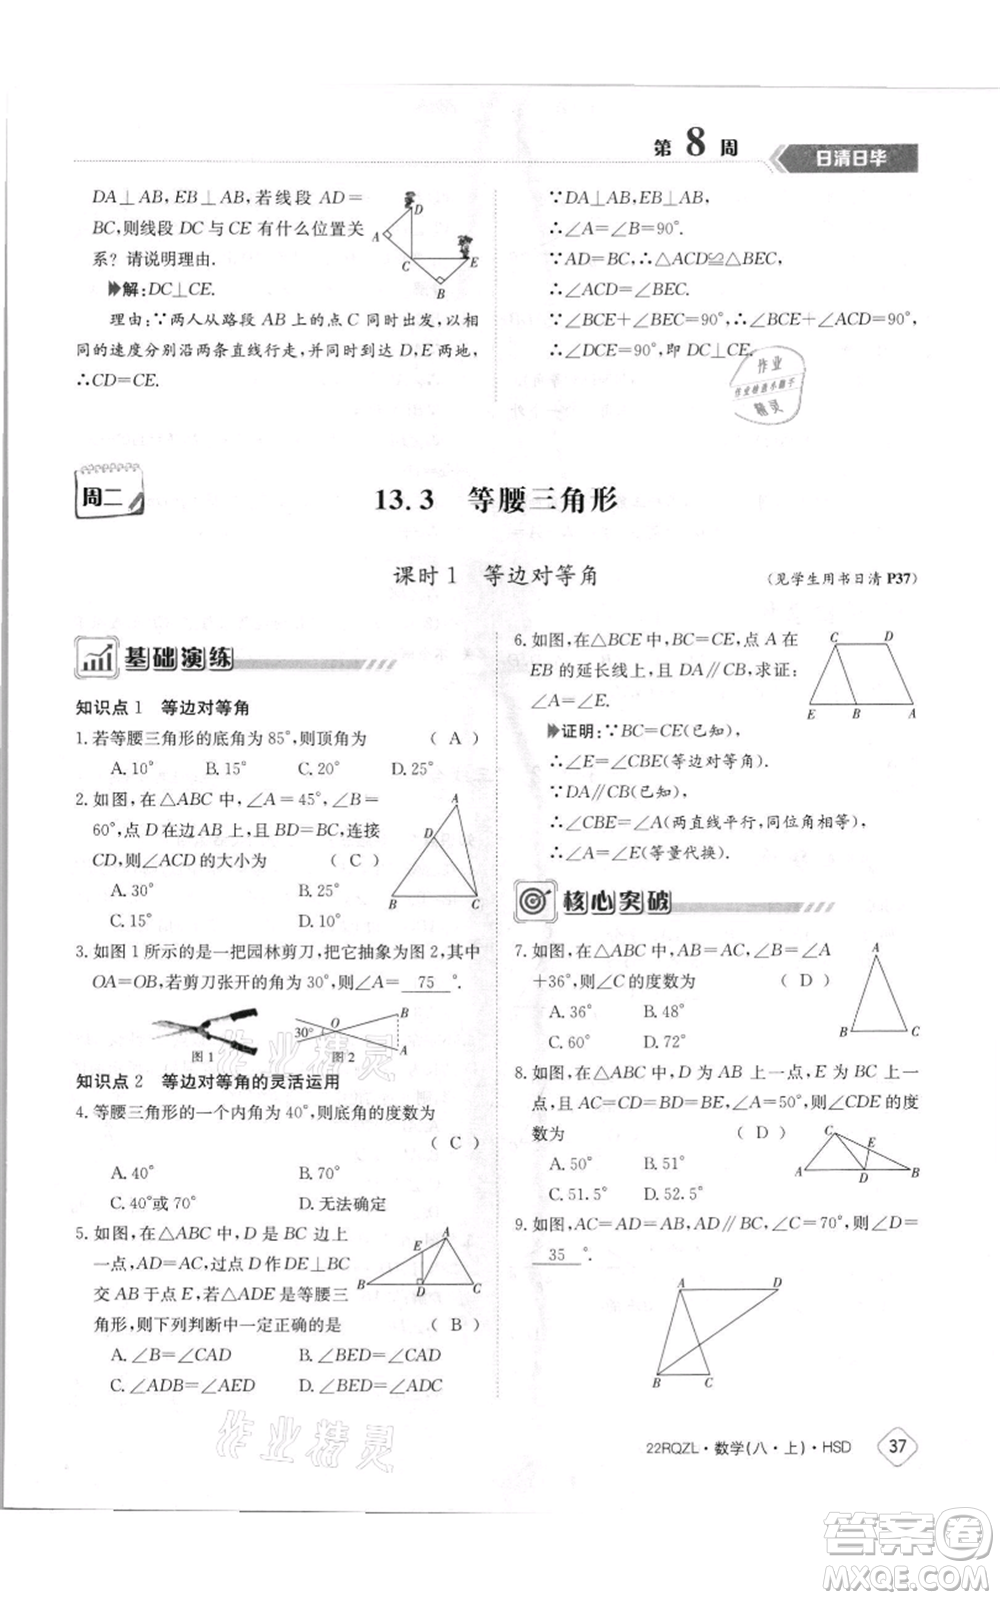 第 8 周
日清日毕
DA⊥AB,EB⊥AB,若线段 AD=
BC,则线段 DC 与 CE 有什么位置关
系?请说明理由.
解:DC⊥CE.
理由:∵两人从路段 AB 上的点 C 同时出发,以相
同的速度分别沿两条直线行走,并同时到达 D,E 两地,
∴CD=CE.
D
A
C
E
B
∵DA⊥AB,EB⊥AB,
∴∠A=∠B=90°.
∵AD=BC,∴△ACD≌△BEC,
∴∠ACD=∠BEC.
∵∠BCE+∠BEC=90°,∴∠BCE+∠ACD=90°,
∴∠DCE=90°,即 DC⊥CE.
作业
精灵
周二
13.3 等腰三角形
课时1 等边对等角
(见学生用书日清 P37)
基础演练
知识点1 等边对等角
1.若等腰三角形的底角为 85°,则顶角为 ( A )
A.10° B.15° C.20° D.25°
2.如图,在△ABC 中,∠A=45°,∠B=
60°,点 D 在边 AB 上,且 BD=BC,连接
CD,则∠ACD 的大小为 ( C )
A.30° B.25°
C.15° D.10°
A
D
B C
3.如图1所示的是一把园林剪刀,把它抽象为图2,其中
OA=OB,若剪刀张开的角为 30°,则∠A= 75 °.
30° O B
A
图1 图2
知识点2 等边对等角的灵活运用
4.等腰三角形的一个内角为 40°,则底角的度数为
( C )
A.40° B.70°
C.40°或70° D.无法确定
5.如图,在△ABC 中,D 是 BC 边上
一点,AD=AC,过点 D 作 DE⊥BC
交 AB 于点 E,若△ADE 是等腰三
角形,则下列判断中一定正确的是 ( B )
A.∠B=∠CAD B.∠BED=∠CAD
C.∠ADB=∠AED D.∠BED=∠ADC
A
E
B D C
6.如图,在△BCE 中,BC=CE,点 A 在
EB 的延长线上,且 DA∥CB,求证:
∠A=∠E.
证明:∵BC=CE(已知),
∴∠E=∠CBE(等边对等角).
∵DA∥CB(已知),
∴∠CBE=∠A(两直线平行,同位角相等),
∴∠A=∠E(等量代换).
C D
E B A
核心突破
7.如图,在△ABC 中,AB=AC,∠B=∠A
+36°,则∠C 的度数为 ( D )
A.50° B.48°
C.72° D.60°
A
B C
8.如图,在△ABC 中,D,E 为 AB,BC 上
一点,AC=CD=BD=BE,∠A=50°,则∠CDE 的度
数为 ( D )
A.50° B.51°
C.51.5° D.52.5°
C
E
A D B
9.如图,AC=AD=AB,AD∥BC,∠C=70°,则∠D=
35 °.
A D
B C
作业精灵
作业精灵
22RQZL·数学(八·上)·HSD 37
答案卷